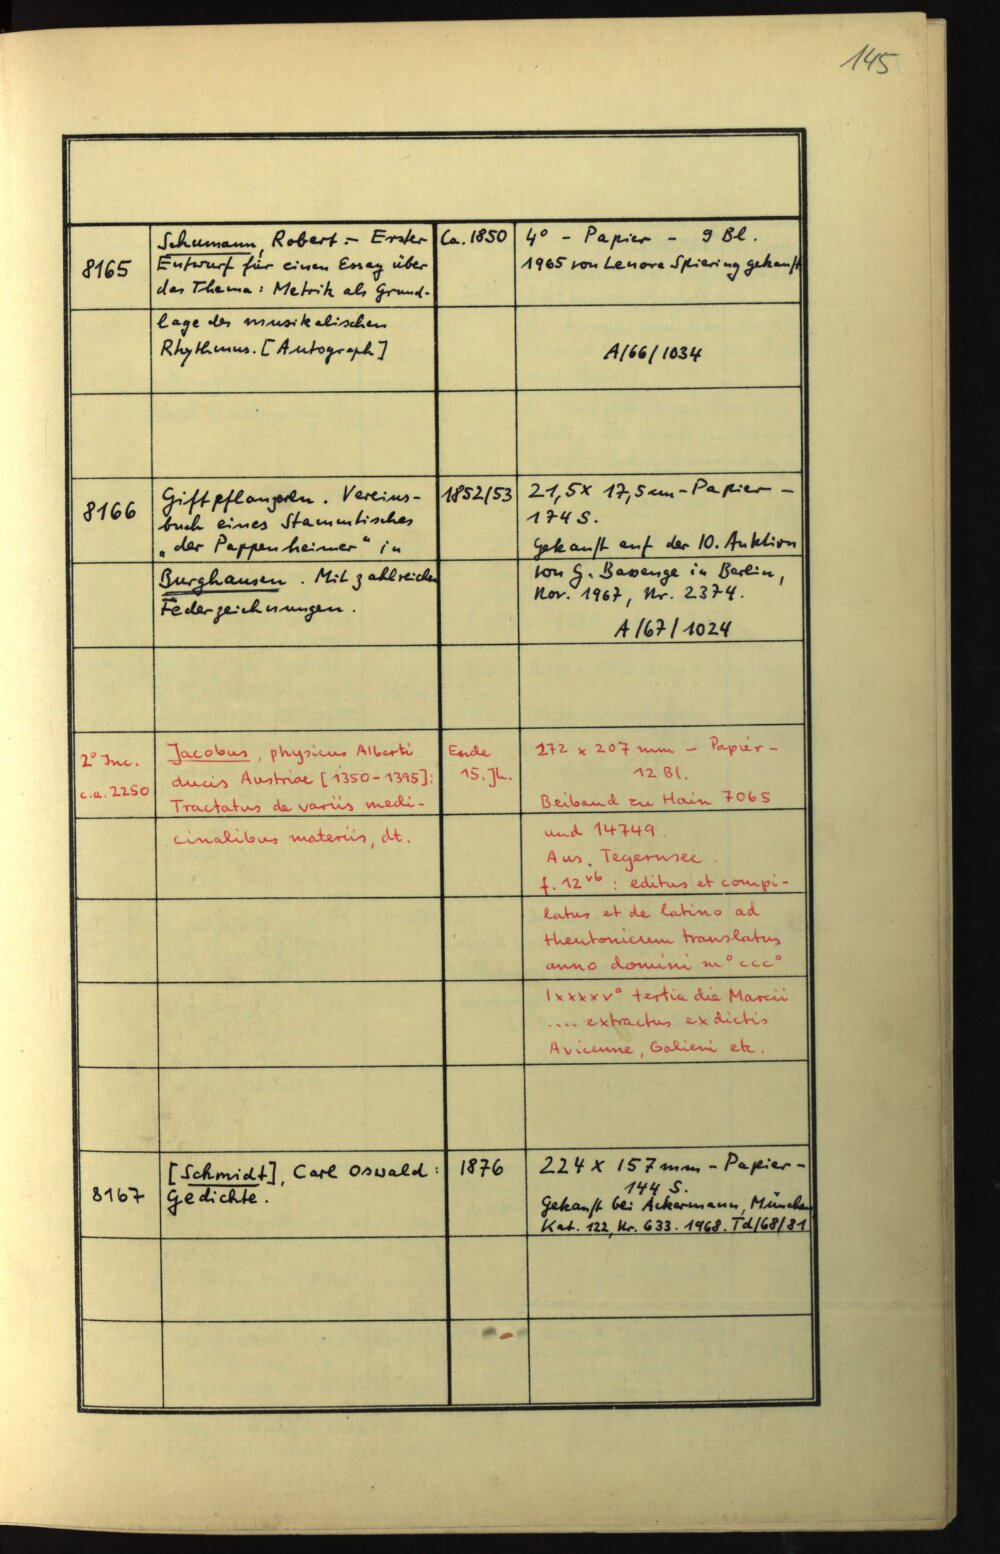 145
8165
Schumann, Robert :- Erster
Entwurf für einen Essay über
das Thema: Metrik als Grund-
lage des musikalischen
Rhythmus. [Autograph]
Ca. 1850
4° - Papier - 9 Bl.
1965 von Lenore Spiering gekauft
A/66/1034
8166
Giftpflanzerln. Vereins-
buch eines Stammtisches
„der Pappenheimer“ in
Burghausen. Mit zahlreichen
Federzeichnungen.
1852/53
21,5 x 17,5 cm - Papier -
174 S.
Gekauft auf der 10. Auktion
von G. Bassenge in Berlin,
Nov. 1967, Nr. 2374.
A/67/1024
2° Inc.
c.a. 2250
Jacobus, physicus Alberti
ducis Austriae [1350-1395]:
Tractatus de variis medi-
cinalibus materiis, dt.
Ende
15. Jh.
272 x 207 mm - Papier -
12 Bl.
Beiband zu Hain 7065
und 14749.
Aus Tegernsee.
f. 12 vb : editus et compi-
latus et de latino ad
theutonicum translatus
anno domini m° ccc°
lxxxxv° tertia die Marcii
.... extractus ex dictis
Avicenne, Galieni etc.
8167
[Schmidt], Carl Oswald:
Gedichte.
1876
224 x 157 mm - Papier -
144 S.
Gekauft bei Ackermann, München
Kat. 122, Nr. 633. 1968. Td/68/81